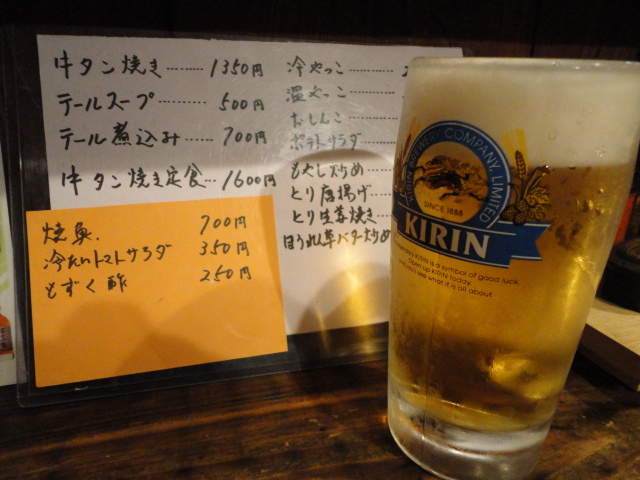 牛タン焼き………1350円
テールスープ……500円
テール煮込み……700円
牛タン焼き定食…1600円
焼魚. 700円
冷たいトマトサラダ 350円
もずく酢 250円
冷やっこ
温やっこ
おしんこ
ポテトサラダ
もやし炒め
とり唐揚げ
とり生姜焼き
ほうれん草バター炒め
KIRIN BREWERY COMPANY, LIMITED
SINCE 1888
KIRIN
legendary Kirin is a symbol of good luck.
Open up Kirin today.
see what it is all about.